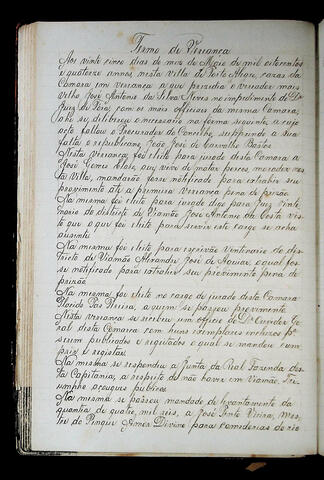 Termo de Vereança
Aos vinte cinco dias do mez de Maio de mil oitocentos
e quatorze annos, nesta Villa de Porto Alegre, cazas da
Camara em vereança a que prezidio o vereador mais
velho José Antonio da Silva Neves no impedimento do Dr.
Juiz de Fóra, com os mais officiaes da mesma Camara,
ahi se deliberou o necessario na forma seguinte, a cujo
acto faltou o Procurador do Concelho, supprindo a sua
falta o republicano, João José de Carvalho Bastos
Nesta vereança foi eleito para jurado desta Camara a
José Gomes que vive de matar porcos, morador nes
ta Villa, mandarão fosse notificado para extrahir seu
provimento até a primeira vereança pena de prizão
Na mesma foi eleito para jurado digo para Juiz Vinte
nario do districto de Viamão José Antonio da Costa vis
to que o que foi eleito para servir este cargo se acha
auzente
Na mesma foi eleito para escrivão Ventenario do des
tricto de Viamão Alexandre José de Aguiar, o qual fos
se notificado para extrahir seu provimento pena de
prizão
Na mesma foi eleito no cargo de jurado desta Camara
Placido a quem se passou provimento
Nesta vereança se recebeu um officio do Dr. Ouvidor Ge
ral desta Comarca com huns exemplares incluzos pª
serem publicados e registados o qual se mandou cum
prir e registar
Na mesma se respondeu a Junta da Real Fazenda des
ta Capitania, a respeito de não haver em Viamão, Tri
umpho açougues publicos
Na mesma se passou mandado de levantamento da
quantia de quatro mil réis, a José Pinto Vieira, Mes
tre do Pinque Amor Divino para comedorias do rio